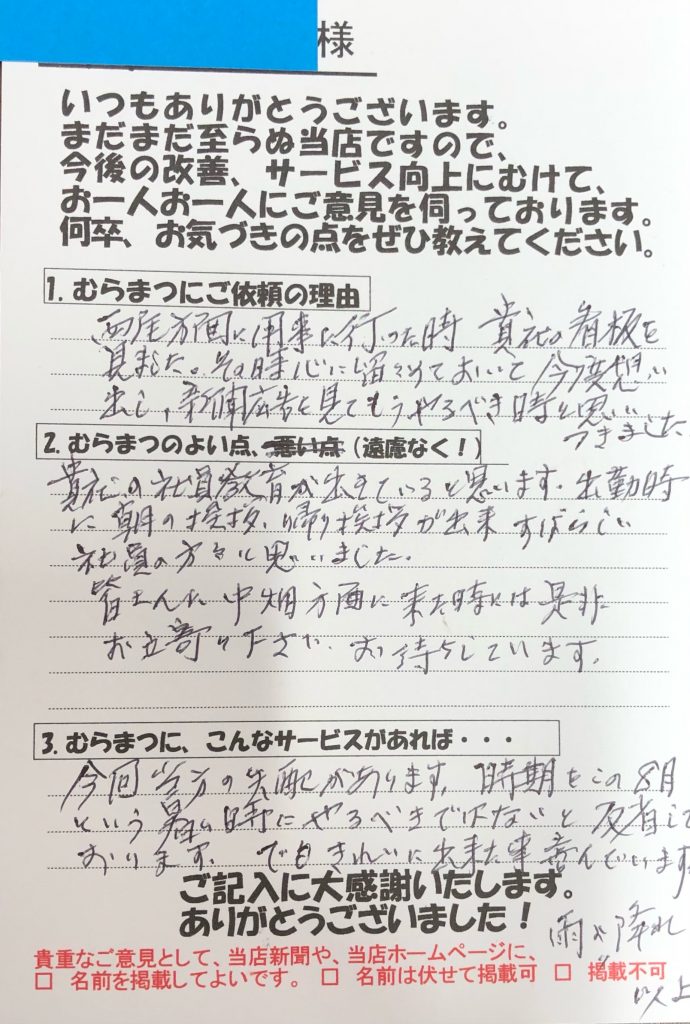 様
いつもありがとうございます。
まだまだ至らぬ当店ですので、
今後の改善、サービス向上にむけて、
お一人お一人にご意見を伺っております。
何卒、お気づきの点をぜひ教えてください。
1. むらまつにご依頼の理由
西尾方面に用事に行った時 貴社の看板を
見ました。その時心に留めておいて今度想い
出し、新聞広告を見てもうやるべき時と思い
つきました
2. むらまつのよい点、悪い点（遠慮なく！）
貴社の社員教育が出きていると思います。出勤時
に朝の挨拶、帰り挨拶が出来 すばらしい
社員の方々と思いました。
皆さんに中畑方面に来た時には是非
お立寄り下さい。お待ちしています。
3. むらまつに、こんなサービスがあれば・・・
今回当方の失配があります。時期をこの8月
という暑い時にやるべきではないと反省して
おります。でもきれいに出来た事喜んでいます
ご記入に大感謝いたします。
ありがとうございました！
雨よ降れ
貴重なご意見として、当店新聞や、当店ホームページに、
□ 名前を掲載してよいです。 □ 名前は伏せて掲載可 □ 掲載不可
以上